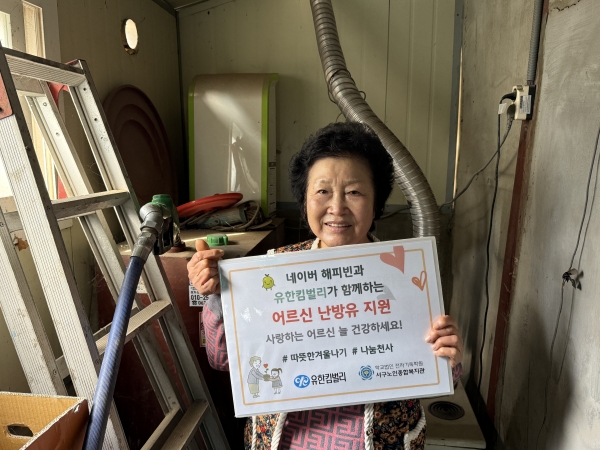 네이버 해피빈과
유한킴벌리가 함께하는
어르신 난방유 지원
사랑하는 어르신 늘 건강하세요!
# 따뜻한겨울나기 #나눔천사
유한킴벌리
서구노인종합복지관